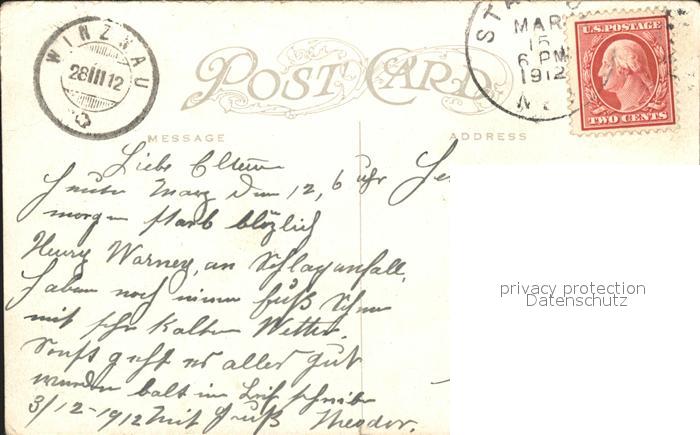 WINZNAU
28 III 12
POST CARD
STA
MAR
15
6 PM
1912
N
U.S. POSTAGE
TWO CENTS
MESSAGE
ADDRESS
Liebe Eltern
heute Marz den 12, 6 uhr
morgen starb blözlich
Henry Warney, an Schlaganfall,
haben noch immer fuß Schnee
mit sehr Kalten Wetter.
Sonst geht es alles gut
werden balt im Brif schreiben
3/12-1912 mit Gruß Theodor.
privacy protection
Datenschutz